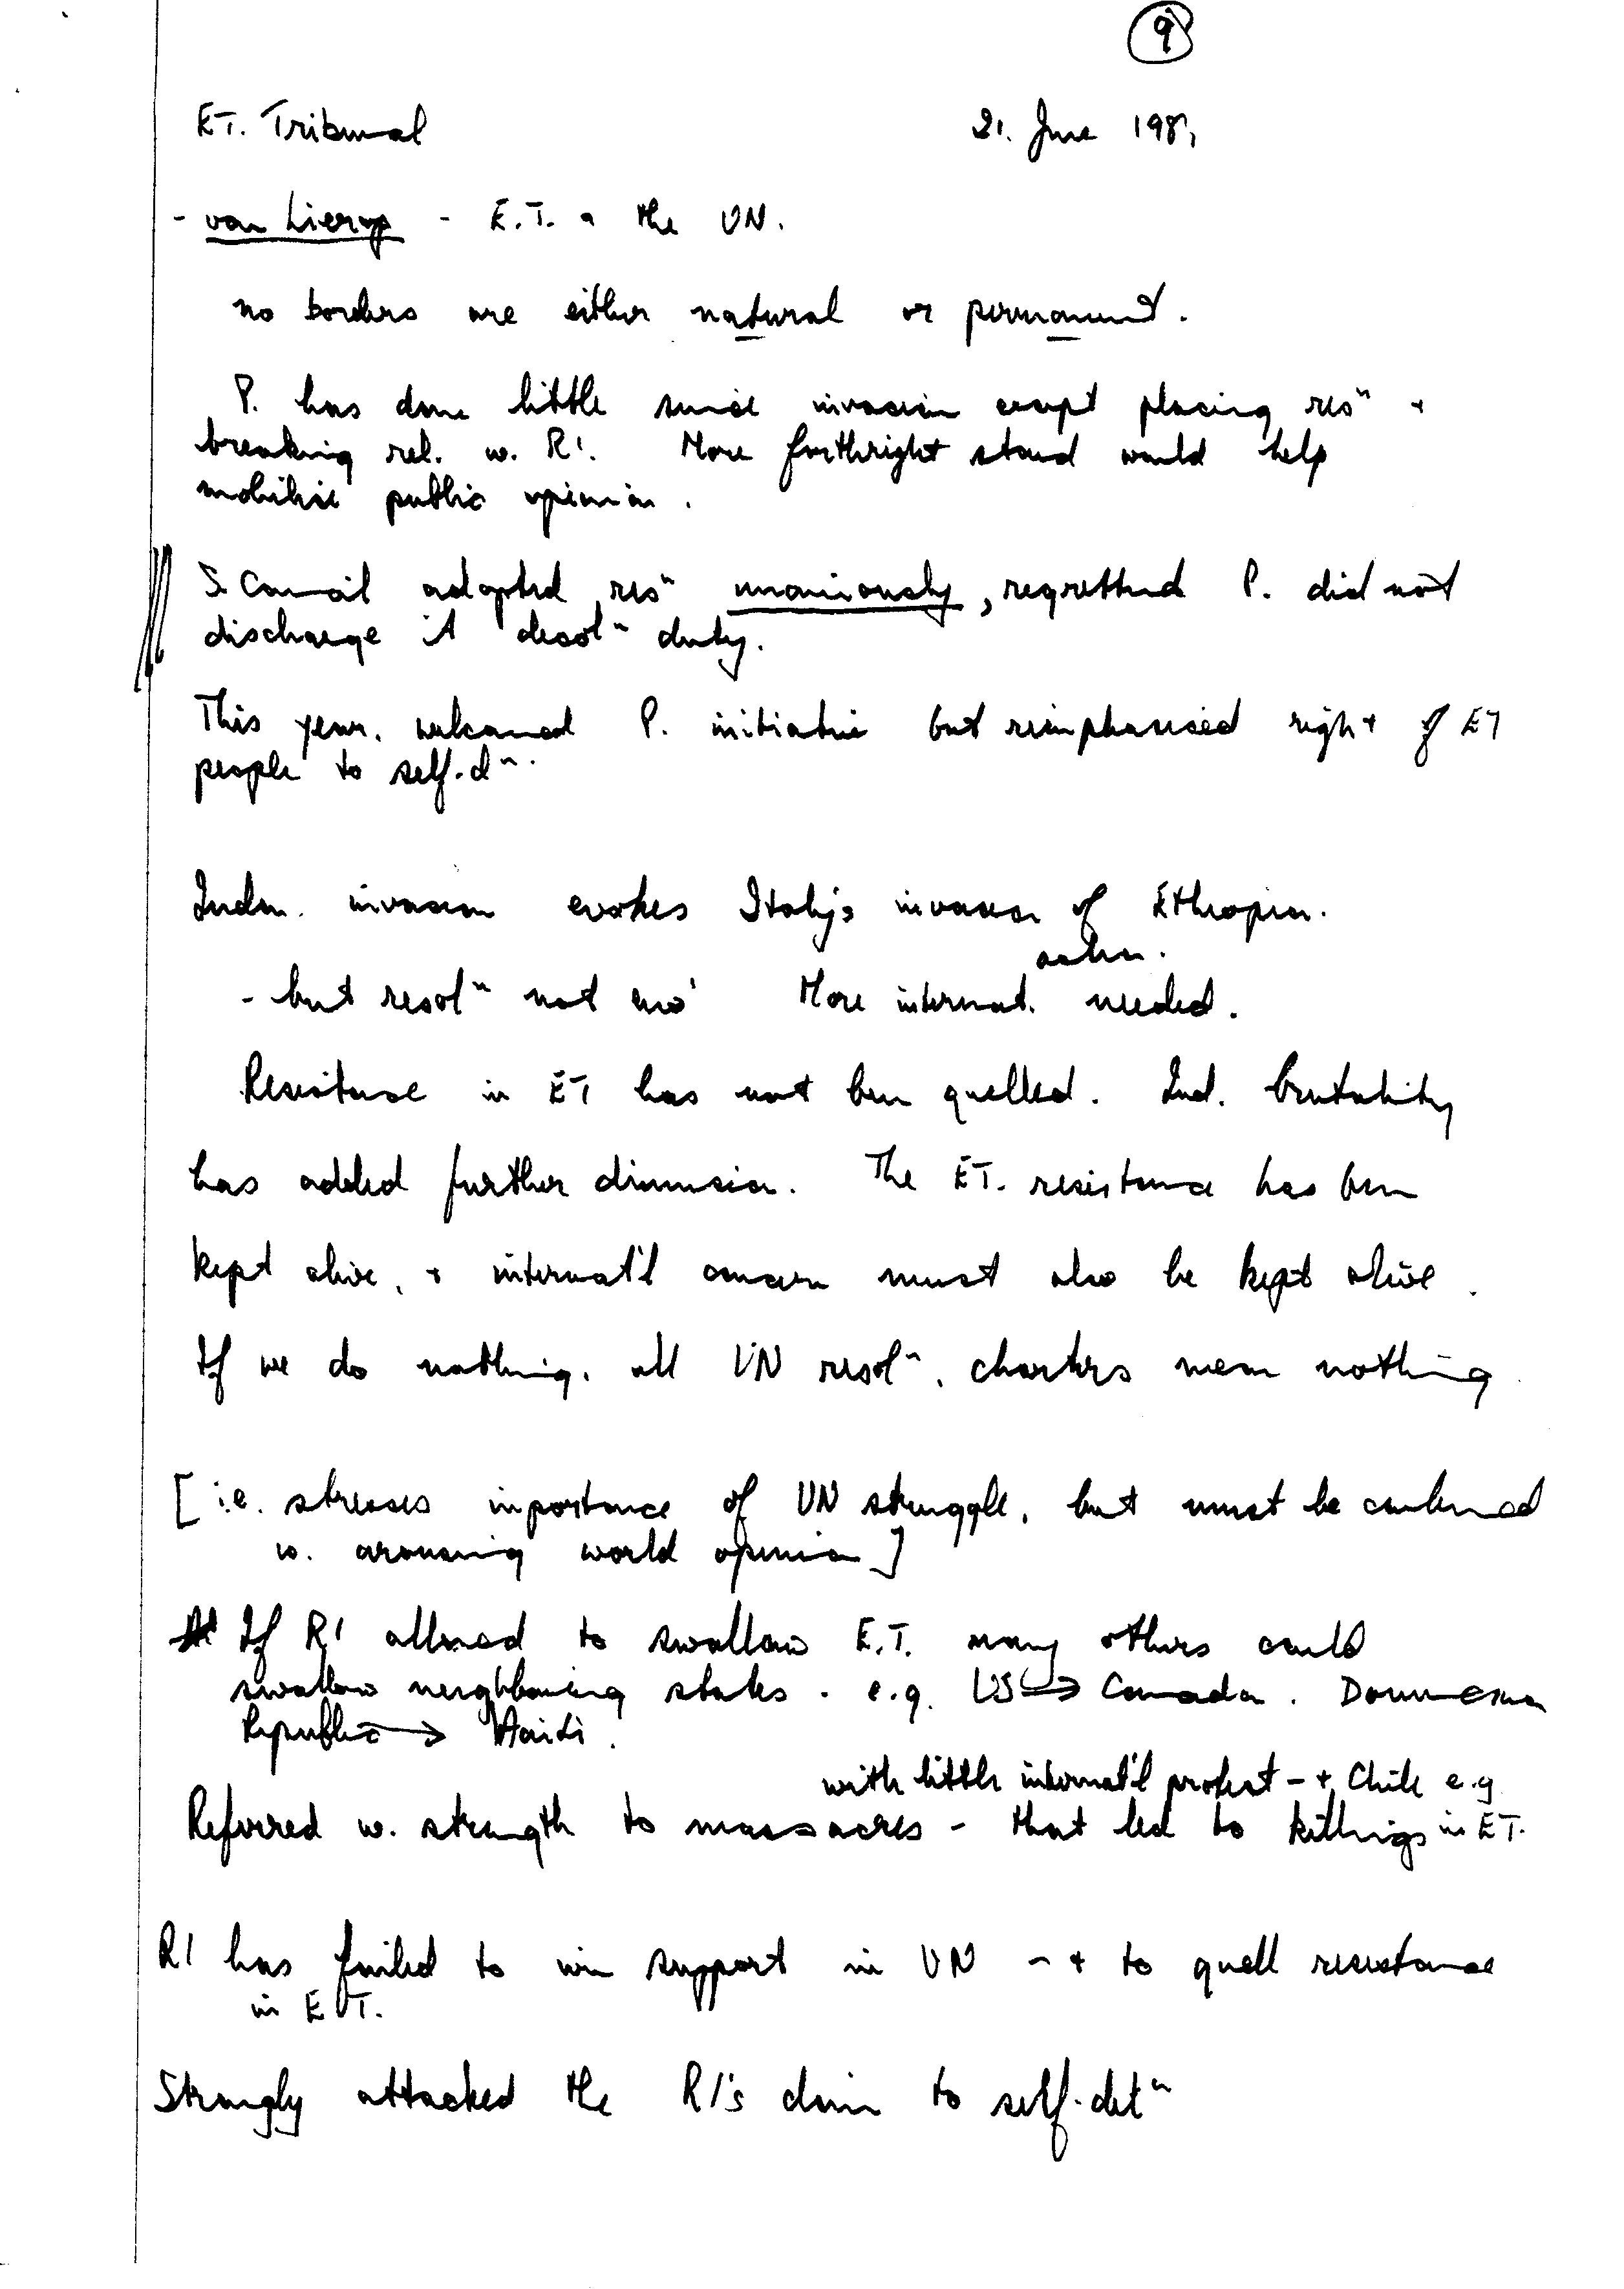 9
ET. Tribunal 21. June 1981
- van Lierop - E.T. & the UN.
no borders are either natural or permanent.
P. has done little since invasion except placing resⁿ +
breaking rel. w. RI. More forthright stand would help
mobilise public opinion.
S. Council adopted resⁿ unaniously, regretted P. did not
discharge it decolⁿ duty.
This year, welcomed P. initiative but reimphasised right of ET
people to self-dⁿ.
Indon. invasion evokes Italy's invasion of Ethiopia.
action.
- but resolⁿ not eno' More internat. needed.
Resistance in ET has not been quelled. Ind. brutality
has added further dimension. The ET. resistance has been
kept alive, + internat'l concern must also be kept alive.
If we do nothing, all UN resolⁿ, charters mean nothing.
[i.e. stresses importance of UN struggle, but must be combined
w. arousing world opinion]
If RI allowed to swallow E.T. many others could
swallow neighbouring states. e.g. US → Canada. Dominican
Republic → Haiti.
with little internat'l protest - + Chile e.g
Referred w. strength to massacres - that led to killings in ET.
RI has failed to win support in UN - + to quell resistance
in ET.
Strongly attacked the RI's claim to self-detⁿ